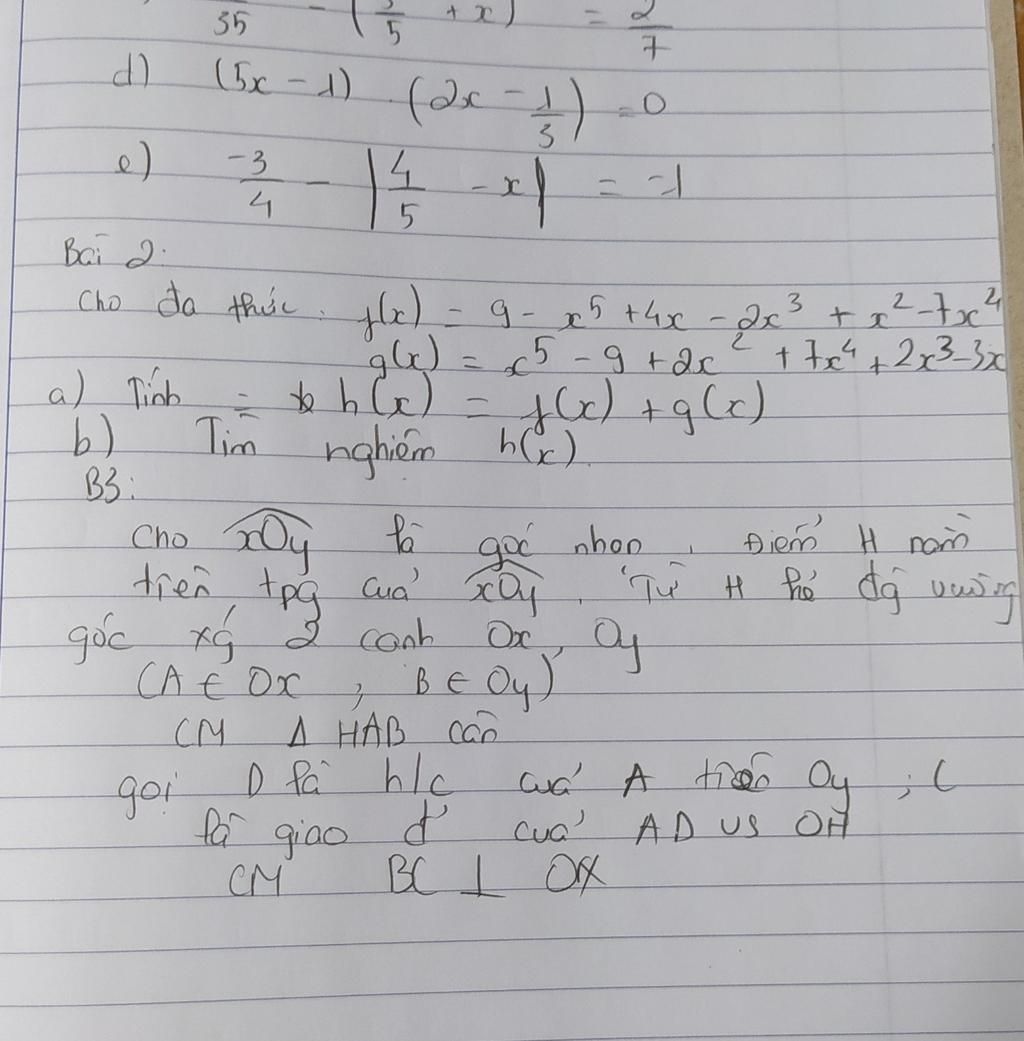 35 - ( /5 + x) = 2/7
d) (5x - 1) . (2x - 1/3) = 0
e) -3/4 - |4/5 - x| = -1
Bài 2:
Cho đa thức: f(x) = 9 - x⁵ + 4x - 2x³ + x² - 7x⁴
g(x) = x⁵ - 9 + 2x² + 7x⁴ + 2x³ - 3x
a) Tính = h(x) = f(x) + g(x)
b) Tìm nghiệm h(x).
B3:
Cho xOy là góc nhọn. Điểm H nằm
trên tpg của xOy. Từ H kẻ đg vuông
góc xg 2 cạnh Ox, Oy
(A ∈ Ox ; B ∈ Oy)
CM Δ HAB cân
gọi D là h/c của A trên Oy ; C
là giao đ' của AD vs OH
CM BC ⊥ OX